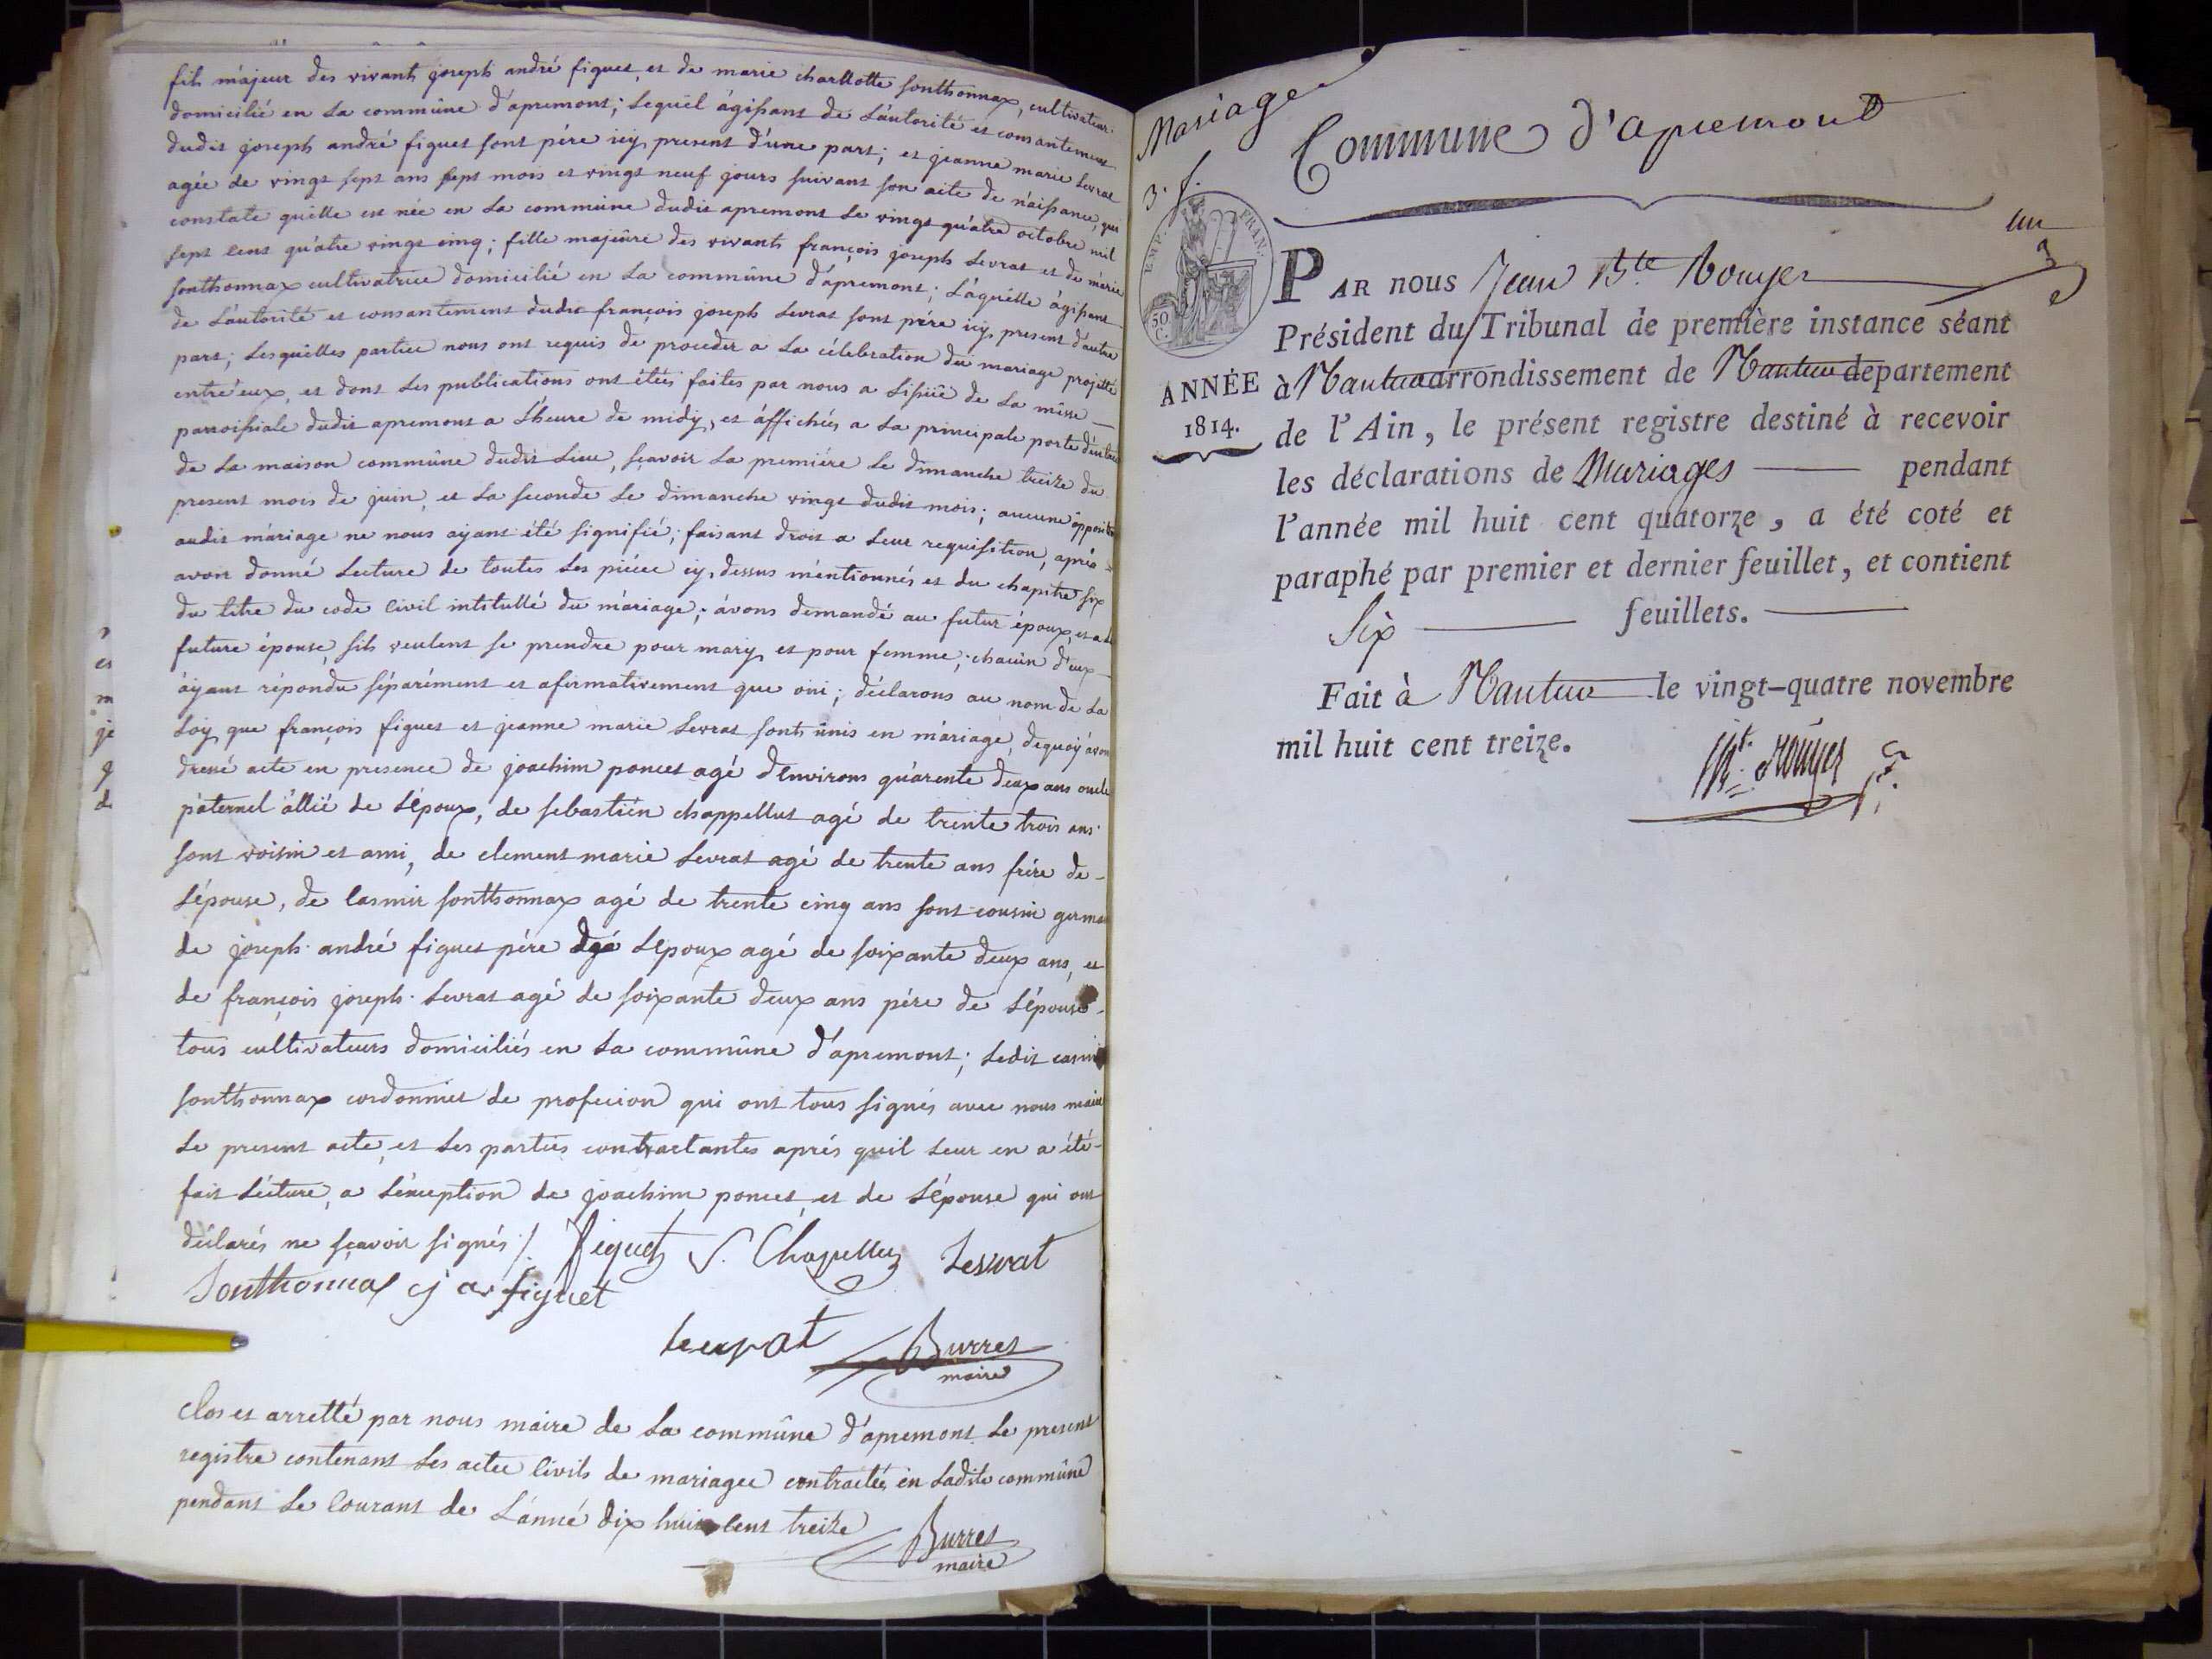 fils májeur des vivants joseph andré figuet, et de marie charllotte sonthonnax, cultivateur
domicilié en la commûne d'apremont; lequêl ágissant de l'áutorité et consantement
dudit joseph andré figuet sont pére icy present d'úne part; et jeanne marie levrat
agée de vingt sept ans sept mois et vingt neuf jours suivant son acte de náissance, qui
constate quélle est née en la commûne dudit apremont le vingt quátre octobre mil
sept cent quátre vingt cinq; fille majeûre des vivants françois joseph levrat et de márie
sonthonnax cultivatrice domicilié en la commûne d'apremont; láquélle ágissant
de l'áutorité et consantement dudit françois joseph levrat sont pére icy present d'autre
part; lesquélles partiee nous ont requis de proceder a la célebration du mariage projetté
entré eux, et dont les publications ont étées faites par nous a lissüe de la mîsse
parroissiale dudit apremont a l'heure de midy, et áffichées a la principale porte d'entrée
de la maison commûne dudit lieu, sçavoir la premiére le dimanche treize du
present mois de juin, et la seconde le dimanche vingt dudit mois; aucune opposition
audit máriage ne nous ayant été signifié; faisant droit a leur requisition, aprés
avoir donné lecture de toutes les piécee cy dessus méntionnés et du chapitre six
du titre du code civil intitullé du máriage; ávons demandé au futur époux, et a la
future épouse, sils veulent se prendre pour mary et pour femme; chacun d'eux
áyant répondu séparément et afirmativement que oüi; déclarons au nom de la
loy que françois figuet et jeanne marie levrat sont ûnis en máriage, dequoy ávons
dressé acte en presence de joachim poncet agé d'environs quárente deux ans oncle
páternel állié de l'époux, de sebastién chappellut agé de trente trois ans
sont voisin et ami, de clement marie levrat agé de trente ans frére de
l'épouse, de casmir sonthonnax agé de trente cinq ans sont cousin germain
de joseph andré figuet pére de lepoux agé de soixante deux ans, et
de françois joseph levrat agé de soixante deux ans pére de l'épouse
tous cultivateurs domiciliés en la commûne d'apremont; ledit casmir
sonthonnax cordonnier de profecion qui ont tous signés avec nous maire
le present acte, et les parties contractantes aprés quil leur en a été
fait lécture, a léxception de joachim poncet, et de l'épouse qui ont
déclarés ne sçavoir signés /. Figuet S. Chapelluz Levrat
Sonthonnax j a figuet
levrat Burret
maire
Clos et arretté par nous maire de la commûne d'apremont le present
registre contenant les actee civils de mariagee contractées en ladite commûne
pendant le courant de l'ánné dix huit cent treize
Burret
maire
Mariage
3. f.
Commune d'apremont
un
EMP. FRAN.
50 C.
ANNÉE
1814.
PAR nous Jean Bte. Rouyer
Président du Tribunal de première instance séant
à Nantua arrondissement de Nantua departement
de l'Ain, le présent registre destiné à recevoir
les déclarations de Mariages pendant
l'année mil huit cent quatorze, a été coté et
paraphé par premier et dernier feuillet, et contient
Six feuillets.
Fait à Nantua le vingt-quatre novembre
mil huit cent treize.
Bt. Rouyer